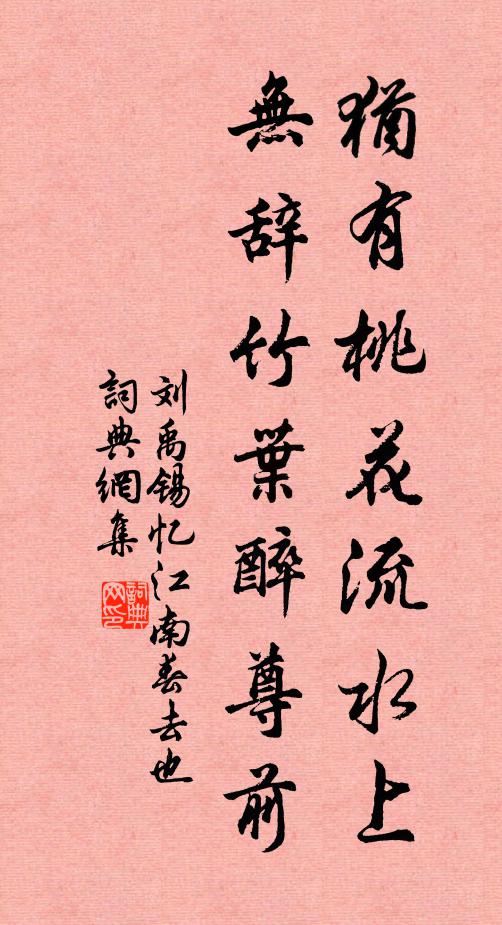 猶有桃花流水上
無辞竹葉醉尊前
刘禹锡忆江南春去也
詞典網集
詞典网印